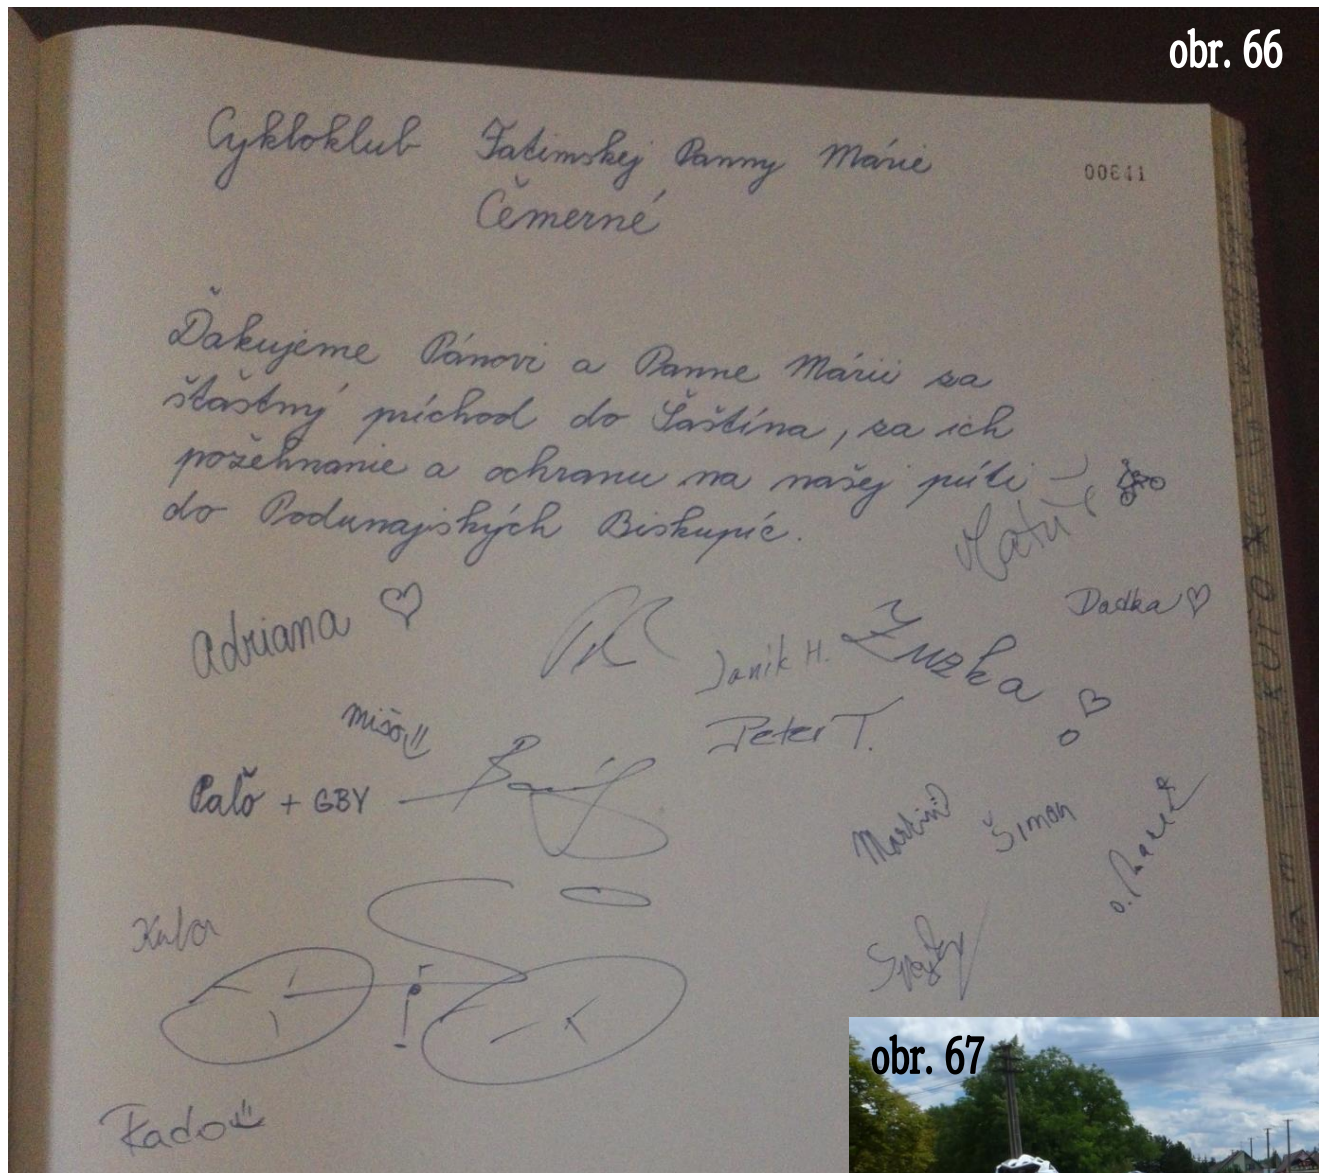 obr. 66
Cykloklub Fatimskej Panny Márie
00641
Čemerné
Ďakujeme Pánovi a Panne Márii za
šťastný príchod do Šaštína, za ich
požehnanie a ochranu na našej púti
do Podunajských Biskupíc.
Matúš
Adriana
Dadka
Janik H.
Zuzka
Mišo
Peter T.
Paľo + GBY
Martin
Šimon
Kubo
obr. 67
Rado